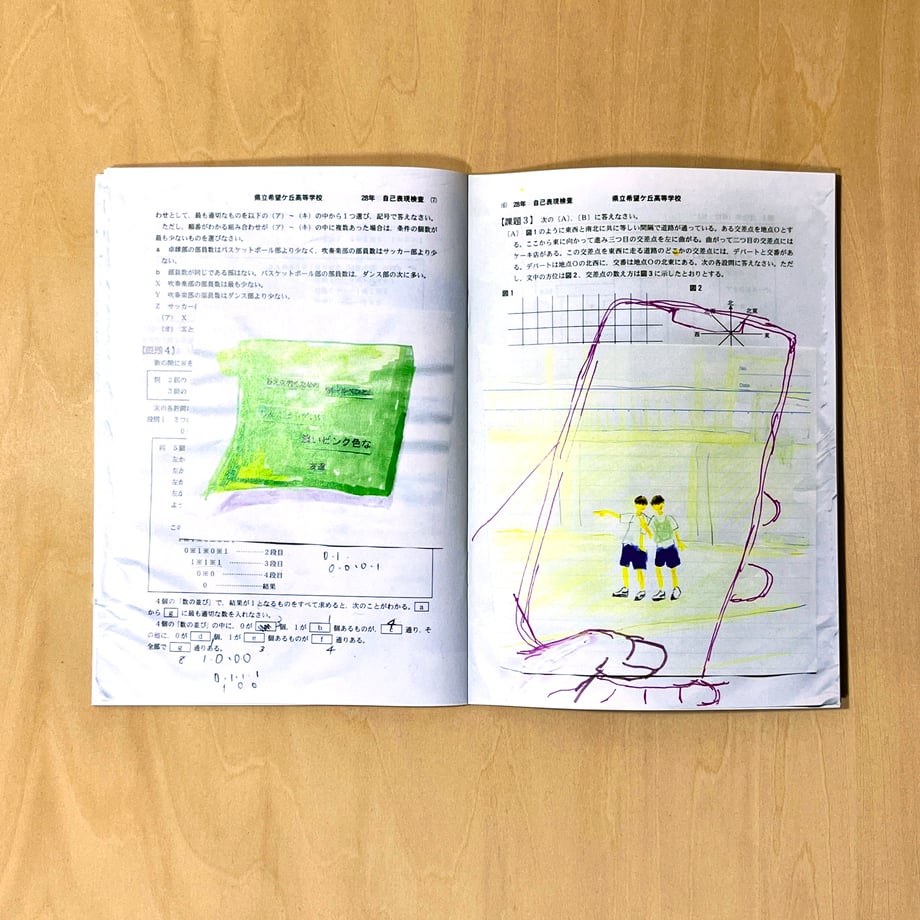 県立希望ケ丘高等学校 28年 自己表現検査 (7)
わせとして、最も適切なものを以下の（ア）～（キ）の中から１つ選び、記号で答えなさい。
ただし、順番がわかる組み合わせが（ア）～（キ）の中に複数あった場合は、条件の個数が
最も少ないものを選びなさい。
a 卓球部の部員数はバスケットボール部より少なく、吹奏楽部の部員数はサッカー部より少
ない。
b 部員数が同じである部はない。バスケットボール部の部員数は、ダンス部の次に多い。
X 吹奏楽部の部員数は最も少ない。
Y 吹奏楽部の部員数はダンス部より少ない。
Z サッカー
（ア） X
（オ）
【課題４】
数の間に※を
例 ２個の
３個の
次の各設問
設問１
例 ５個
左か
左か
左か
左か
よっ
強いピンク色な
友達
0※1※0※1 …………２段目
1※1※1 …………３段目
0※0 …………４段目
0 …………結果
0.1.
0.0.0.1
４個の「数の並び」で、結果が１となるものをすべて求めると、次のことがわかる。 a
から g に最も適切な数を入れなさい。
４個の「数の並び」の中に、０が 個、１が b 個あるものが、 c 通り、そ
4
の他に、０が d 個、１が e 個あるものが f 通りある。
3 4
全部で g 通りある。
8 1.0.0.0
0.1.1.1
1 0 0
(6) 28年 自己表現検査 県立希望ケ丘高等学校
【課題３】 次の〔A〕、〔B〕に答えなさい。
〔A〕 図１のように東西と南北に共に等しい間隔で道路が通っている。ある交差点を地点Ｏとす
る。ここから東に向かって進み三つ目の交差点を左に曲がる。曲がって二つ目の交差点には
ケーキ店がある。この交差点を東西に走る道路のどこかの交差点には、デパートと交番があ
る。デパートは地点Ｏの北西に、交番は地点Ｏの北東にある。次の各設問に答えなさい。ただ
し、文中の方位は図２、交差点の数え方は図３に示したとおりとする。
図１ 図２
北
北東
西 東
No.
Date